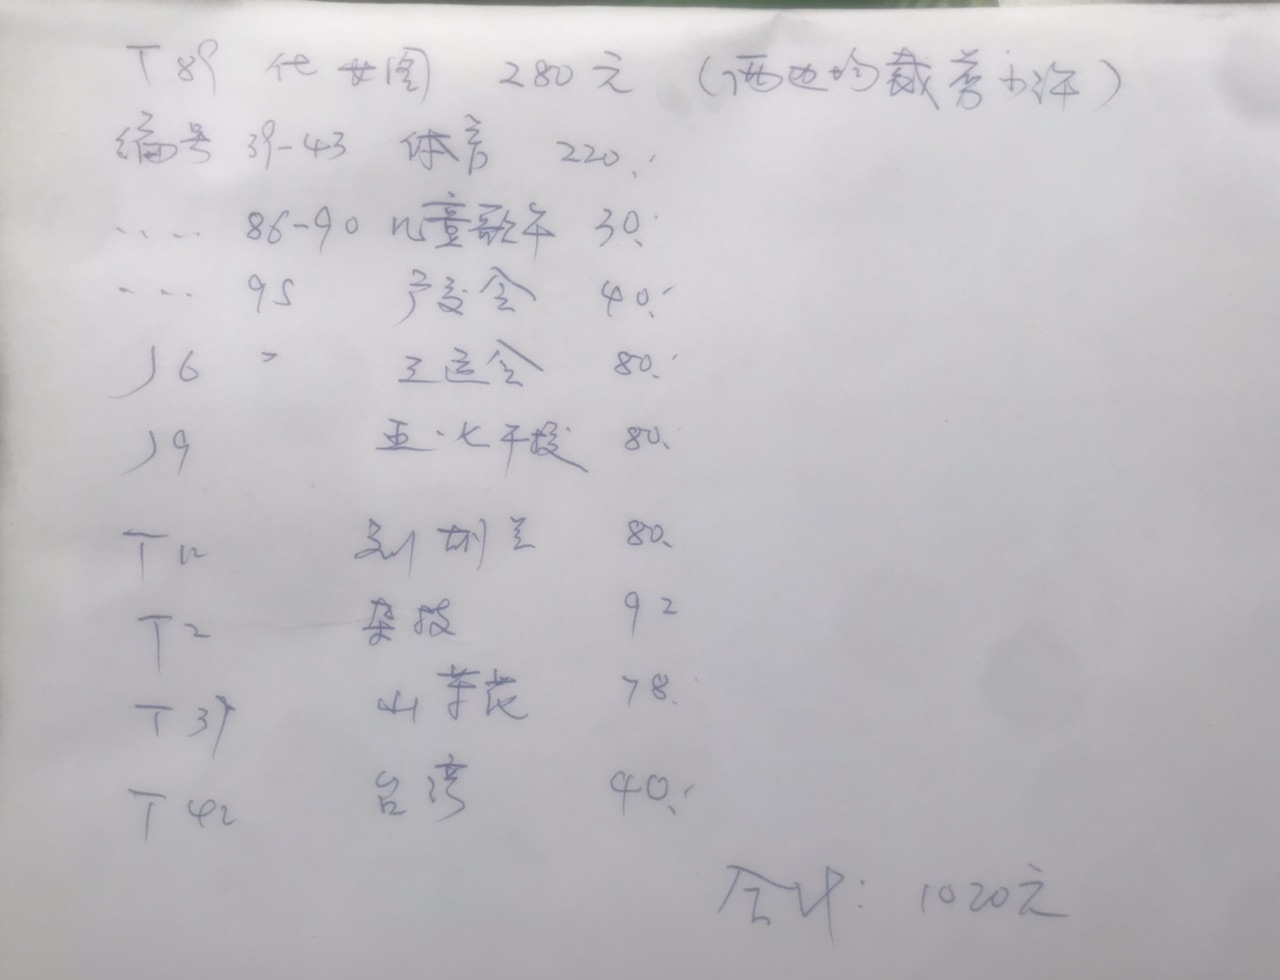 T89 仕女图 280元 (两边均裁剪少许)
编号 39-43 体育 220.
..... 86-90 儿童歌午 30.
..... 95 广交会 40.
J6 〃 三运会 80.
J9 五·七干校 80.
T12 刘胡兰 80.
T2 杂技 92
T37 山茶花 78.
T42 台湾 40.
合计: 1020元